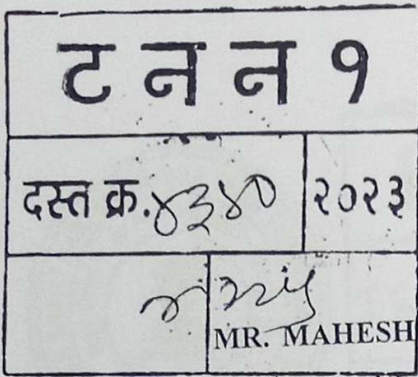 ट न न १
दस्त क्र. ४३४० २०२३
MR. MAHESH